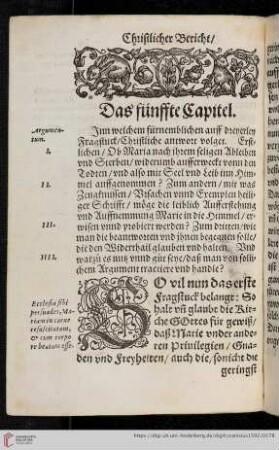 Christlicher Bericht/
Das fünffte Capitel.
Argumen-
tum.
Inn welchem fürnemblichen auff dreyerley
Fragstuck/Christliche antwort volget. Erst-
I.
lichen/ Ob Maria nach jhrem seligen Ableiben
vnd Sterben/ widerumb aufferweckt vonn den
Todten/ vnd also mit Seel vnd Leib inn Him-
II.
mel auffgenommen? Zum andern/ mit was
Zeugknussen/ Vrsachen vnnd Exemplen heili-
ger Schrifft/ möge die leiblich Aufferstehung
vnd Auffnemmung Marie in die Himmel/ er-
III.
wisen vnnd probiert werden? Zum dritten/ wie
man die beantworten vnd jhnen begegnen solle/
die den Widerthail glauben vnd halten. Vnd
IIII.
warzu es nutz vnnd gůt seye/ daß man von sölli-
chem Argument tractiere vnd handle?
Ecclesia sibi
persuadet, Ma-
riam in carne
resuscitatam,
& cum corpo-
re beatam esse.
SO vil nun das erste
Fragstuck belangt: So
halt vñ glaubt die Kir-
che GOttes für gewiß/
daß Marie vnder ande-
ren Priuilegien/ Gna-
den vnd Freyheiten/ auch die/ so nicht die
geringst